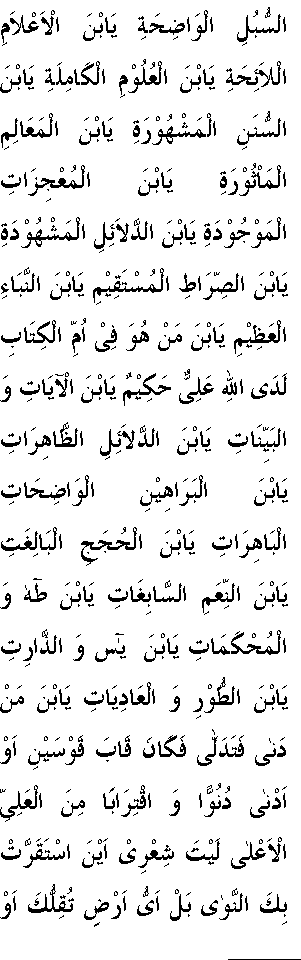 السُّبُلِ الْوَاضِحَةِ يَابْنَ الْاَعْلَامِ
الْلَائِحَةِ يَابْنَ الْعُلُوْمِ الْكَامِلَةِ يَابْنَ
السُّنَنِ الْمَشْهُوْرَةِ يَابْنَ الْمَعَالِمِ
الْمَاْثُوْرَةِ يَابْنَ الْمُعْجِزَاتِ
الْمَوْجُوْدَةِ يَابْنَ الدَّلَائِلِ الْمَشْهُوْدَةِ
يَابْنَ الصِّرَاطِ الْمُسْتَقِيْمِ يَابْنَ النَّبَاءِ
الْعَظِيْمِ يَابْنَ مَنْ هُوَ فِىْ اُمِّ الْكِتَابِ
لَدَى اللهِ عَلِىٌّ حَكِيْمٌ يَابْنَ الْآيَاتِ وَ
الْبَيِّنَاتِ يَابْنَ الدَّلَائِلِ الظَّاهِرَاتِ
يَابْنَ الْبَرَاهِيْنِ الْوَاضِحَاتِ
الْبَاهِرَاتِ يَابْنَ الْحُجَجِ الْبَالِغَتِ
يَابْنَ النِّعَمِ السَّابِغَاتِ يَابْنَ طٰهٰ وَ
الْمُحْكَمَاتِ يَابْنَ يٰسٓ وَ الذَّارِتِ
يَابْنَ الطُّوْرِ وَ الْعَادِيَاتِ يَابْنَ مَنْ
دَنٰى فَتَدَلّٰى فَكَانَ قَابَ قَوْسَيْنِ اَوْ
اَدْنٰى دُنُوًّا وَ اقْتِرَابًا مِنَ الْعَلِيِّ
الْاَعْلٰى لَيْتَ شِعْرِىْ اَيْنَ اسْتَقَرَّتْ
بِكَ النَّوٰى بَلْ اَىُّ اَرْضٍ تُقِلُّكَ اَوْ